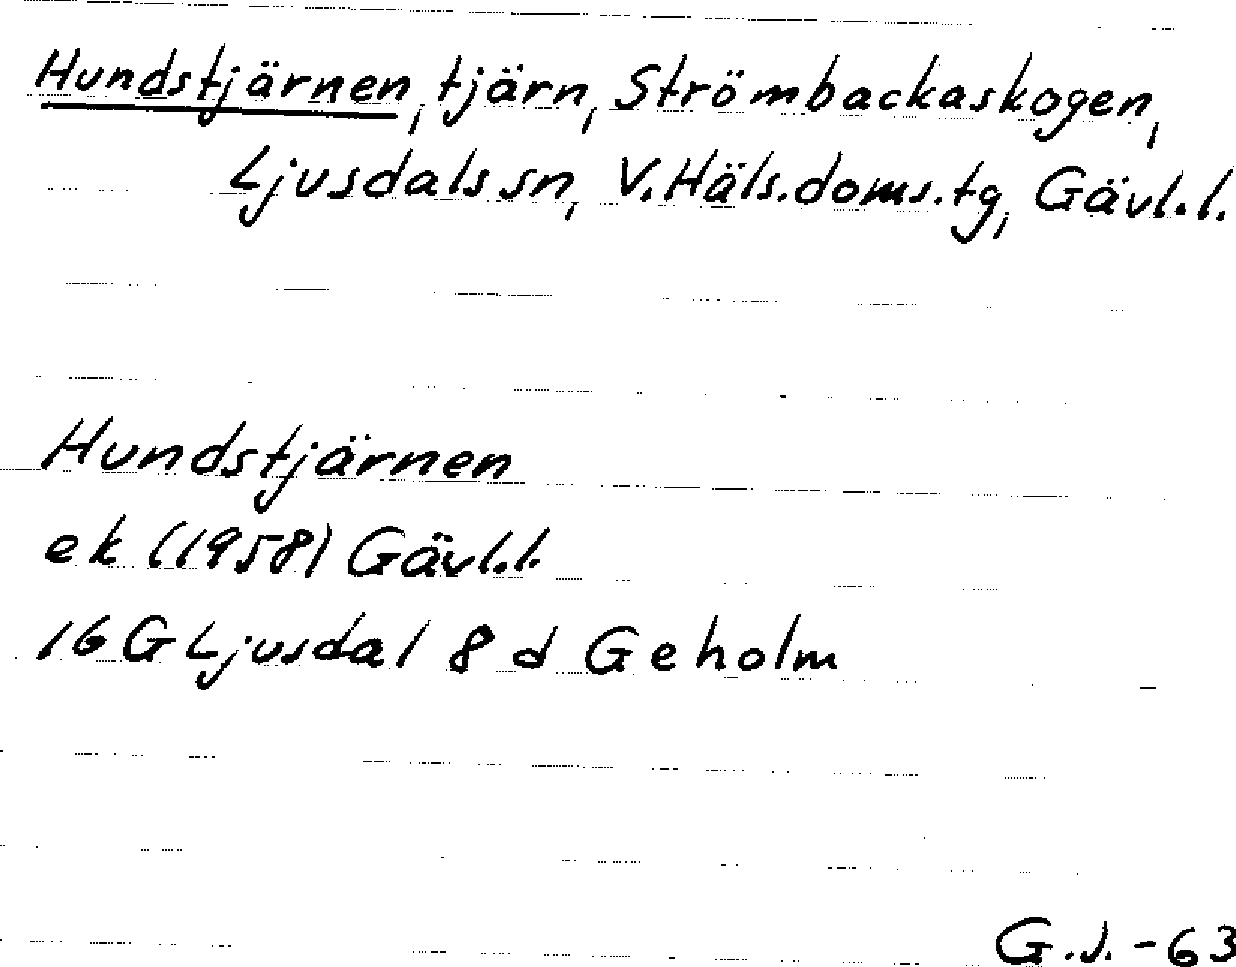 Hundstjärnen, tjärn, Strömbackaskogen,
Ljusdals sn, V. Häls. doms. tg, Gävl. l.
Hundstjärnen
ek (1958) Gävl. l.
16 G Ljusdal 8 d Geholm
G.J. -63